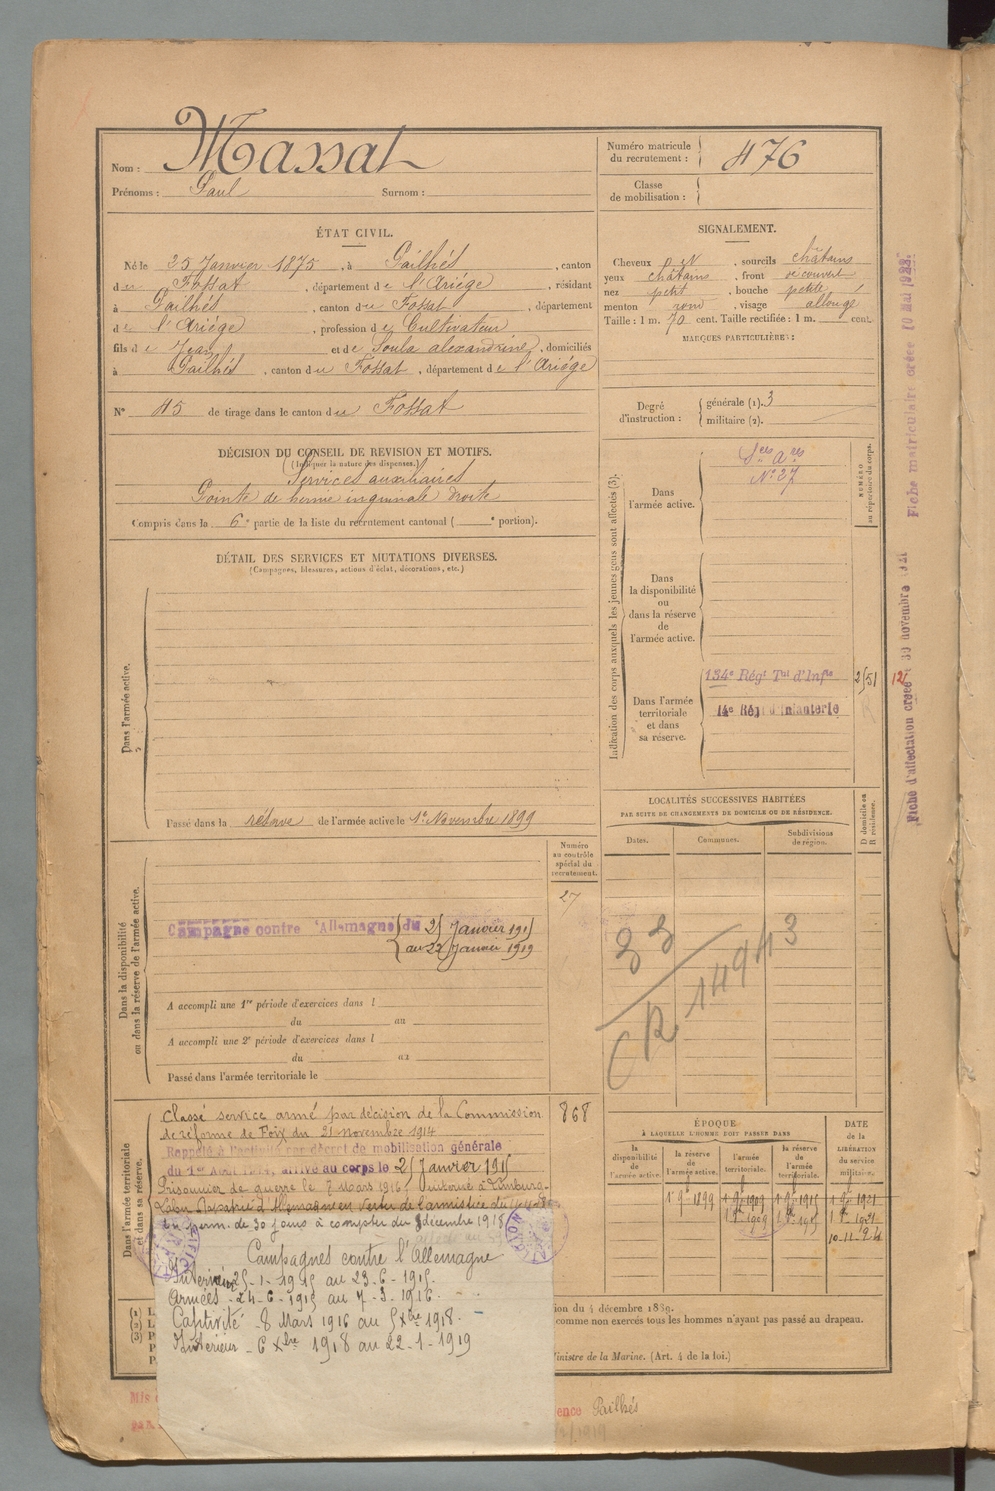 Nom : Massat
Prénoms : Paul Surnom :
Numéro matricule du recrutement : 476
Classe de mobilisation :
ÉTAT CIVIL.
Né le 25 Janvier 1875, à Pailhés, canton
du Fossat, département de l'Ariége, résidant
à Pailhés, canton du Fossat, département
de l'Ariége, profession de Cultivateur
fils de Jean et de Soula alexandrine, domiciliés
à Pailhés, canton du Fossat, département de l'Ariége
N° 45 de tirage dans le canton du Fossat
SIGNALEMENT.
Cheveux , sourcils châtains
yeux châtains, front découvert
nez petit, bouche petite
menton rond, visage allongé
Taille : 1 m. 70 cent. Taille rectifiée : 1 m. cent.
MARQUES PARTICULIÈRES :
Degré d'instruction : générale (1). 3
militaire (2).
DÉCISION DU CONSEIL DE REVISION ET MOTIFS.
(Indiquer la nature des dispenses.)
Services auxiliaires
Pointe de hernie inguinale droite
Compris dans la 6e partie de la liste du recrutement cantonal ( e portion).
DÉTAIL DES SERVICES ET MUTATIONS DIVERSES.
(Campagnes, blessures, actions d'éclat, décorations, etc.)
Dans l'armée active.
Passé dans la réserve de l'armée active le 1er Novembre 1899
Indication des corps auxquels les jeunes gens sont affectés (3).
NUMÉRO au répertoire du corps.
Dans l'armée active.
Sces Ares
N° 27
Dans la disponibilité ou dans la réserve de l'armée active.
Dans l'armée territoriale et dans sa réserve.
134e Régt Tal d'Infie
14e Régt d'Infanterie
Fiche matriculaire créée 10 Mai 1922
Fiche d'affectation créée le 30 novembre 1921
LOCALITÉS SUCCESSIVES HABITÉES
PAR SUITE DE CHANGEMENTS DE DOMICILE OU DE RÉSIDENCE.
Dates. Communes. Subdivisions de région.
D domicile ou R résidence.
CR 14943
Dans la disponibilité ou dans la réserve de l'armée active.
Numéro au contrôle spécial du recrutement.
27
Campagne contre l'Allemagne du 25 Janvier 1915
au 22 Janvier 1919
A accompli une 1re période d'exercices dans l
du au
A accompli une 2e période d'exercices dans l
du au
Passé dans l'armée territoriale le
Dans l'armée territoriale et dans sa réserve.
868
Classé service armé par décision de la Commission
de réforme de Foix du 21 novembre 1914
Rappelé à l'activité par décret de mobilisation générale
du 1er Août 1914, arrivé au corps le 25 Janvier 1915
Prisonnier de guerre le 7 Mars 1916. Interné à Limburg-
Lahn Rapatrié d'Allemagne en Vertu de l'armistice du
perm. de 30 jours à compter du 8 décembre 1918
Campagnes contre l'Allemagne
Intérieur 25-1-1915 au 23-6-1915.
Armées - 24-6-1915 au 7-3-1916.
Captivité - 8 Mars 1916 au 5 Xbre 1918.
Intérieur - 6 Xbre 1918 au 22-1-1919
ÉPOQUE
À LAQUELLE L'HOMME DOIT PASSER DANS
la disponibilité de l'armée active. la réserve de l'armée active. l'armée territoriale. la réserve de l'armée territoriale.
DATE de la LIBÉRATION du service militaire.
1er 9bre 1899 1er 9bre 1909 1er 9bre 1915 1er 9bre 1921
1er 9bre 1909 1er 8bre 1915 1er 1921
10-11-24
(1)
(2)
(3)
ion du 4 décembre 1889.
comme non exercés tous les hommes n'ayant pas passé au drapeau.
Ministre de la Marine. (Art. 4 de la loi.)
Mis
ence Pailhés